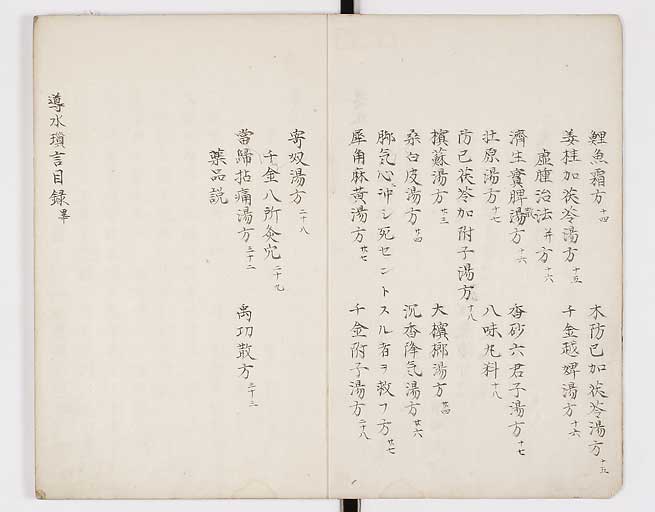 鯉魚霜方 十四　木防已加茯苓湯方 十五
姜桂加茯苓湯方 十五　千金越婢湯方 十六
虚腫治法并方 十六
濟生實脾湯方 十六　香砂六君子湯方 十七
壮原湯方 十七　八味丸料 十八
防已茯苓加附子湯方 十八
檳蘇湯方 廿三　大檳榔湯方 廿四
桑白皮湯方 廿四　沉香降気湯方 廿六
脚気心冲シ死セントスル者ヲ救フ方 廿七
犀角麻黄湯方 廿七　千金附子湯方 二十八
寄奴湯方 二十八
千金八所灸穴 二十九
當歸拈痛湯方 三十二　禹功散方 三十三
藥品説
導水瑣言目録 畢